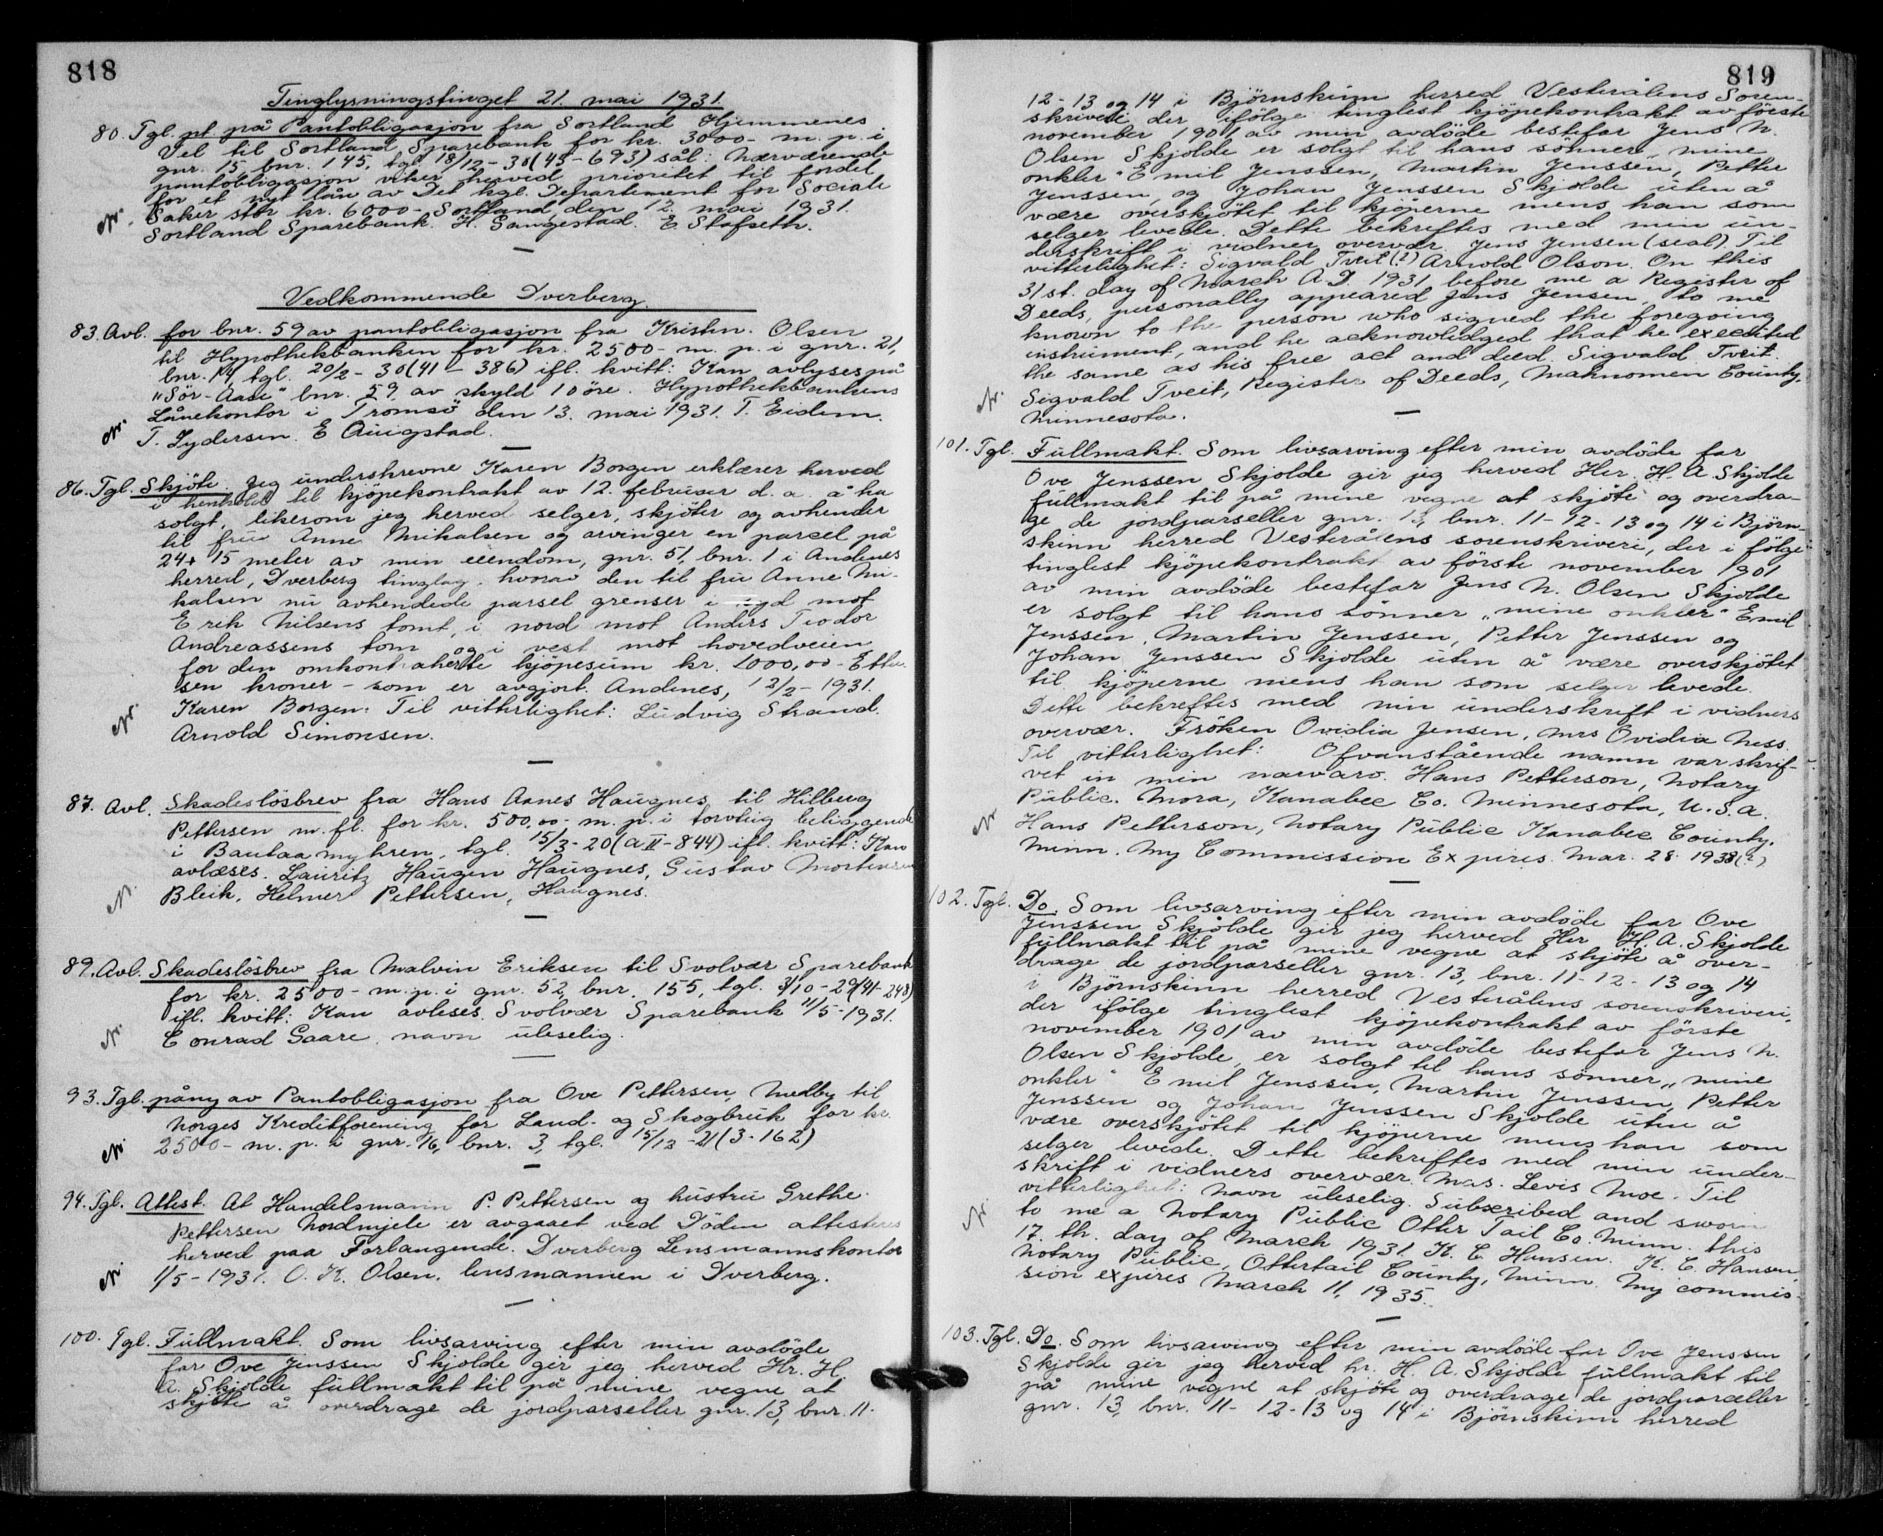 818
Tinglysningstinget 21. mai 1931.
80. Tgl. pt. på Pantobligasjon fra Sortland Hjemmenes
Vel til Sortland Sparebank for kr. 3000- m. p. i
gnr. 15, bnr. 145, tgl. 18/12-30 (43-693) sål: Nærværende
pantobligasjon viker herved prioritet til fordel
for et nyt lån av Det kgl. Departement for Sociale
Saker stor kr. 6000- Sortland, den 12. mai 1931.
Sortland Sparebank. H. Gangestad. E Stafseth.
Vedkommende Dverberg.
83. Avl. for bnr. 59 av pantobligasjon fra Kristn. Olsen
til Hypothekbanken for kr. 2500- m. p. i gnr. 21,
bnr. 14, tgl. 20/2-30 (41-386) ifl. kvitt: Kan avlyses på
"Sör-Aase" bnr. 59 av skyld 10 öre. Hypothekbankens
Lånekontor i Tromsö den 13. mai 1931. T. Eidem.
T. Lydersen. E Auigstad.
86. Tgl. Skjöte. Jeg underskrevne Karen Borgen erklærer herved
i henhold til kjöpekontrakt av 12. februar d. a. å ha
solgt, likesom jeg herved selger, skjöter og avhender
til frue Anne Mikalsen og arvinger en parcel på
24 + 15 meter av min eiendom, gnr. 51, bnr. 1 i Andenes
herred, Dverberg tinglag, hvorav den til frue Anne Mi-
kalsen nu avhendede parsel grenser i syd mot
Erik Nilsens tomt, i nord mot Anders Tiodor
Andreassens tom og i vest mot hovedveien
for den omkontraherte kjöpesum kr. 1000,00- Ettu-
sen kroner - som er avgjort. Andenes, 12/2-1931.
Karen Borgen. Til vitterlighet: Ludvig Strand.
Arnold Simonsen.
87. Avl. Skadeslösbrev fra Hans Aanes Haugnes til Hilberg
Pettersen m. fl. for kr. 500,00- m. p. i torvteig beliggende
i Bautaamyhren, tgl. 15/3-20 (A II-844) ifl. kvitt: Kan
avlæses. Lauritz Haugen Haugnes, Gustav Mortensen
Bleik, Helmer Pettersen, Haugnes.
89. Avl. Skadeslösbrev fra Malvin Eriksen til Svolvær Sparebank
for kr. 2500- m. p. i gnr. 52, bnr. 155, tgl. 3/10-29 (41-248)
ifl. kvitt: Kan avleses. Svolvær Sparebank 11/5-1931.
Conrad Gaare. navn uleselig.
93. Tgl. påny av Pantobligasjon fra Ove Pettersen, Medby til
Norges Kreditforening for Land- og Skogbruk for kr.
2500- m. p. i gnr. 16, bnr. 3, tgl. 15/12-21 (3-162)
94. Tgl. Attest. At Handelsmann P. Pettersen og hustru Grethe
Pettersen Nordmjele er avgaaet ved Döden attesteres
herved paa Forlangende. Dverberg Lensmannskontor
1/5-1931. O. K. Olsen. lensmannen i Dverberg.
100. Tgl. Fullmakt. Som livsarving efter min avdöde
far Ove Jenssen Skjolde gir jeg herved Hr. H.
A. Skjolde fullmakt til på mine vegne at
skjöte å overdrage de jordparseller gnr. 13, bnr. 11-
819
12-13 og 14 i Björnskinn herred Vesterålens Soren-
skriveri der ifölge tinglest kjöpekontrakt av förste
november 1901 av min avdöde bestefar Jens N.
Olsen Skjolde er solgt til hans sönner "mine
onkler" Emil Jenssen, Martin Jenssen, Petter
Jenssen, og Johan Jenssen Skjolde uten å
være overskjötet til kjöperne mens han som
selger levede. Dette bekreftes med min un-
derskrift i vidners overvær. Jens Jensen (seal). Til
vitterlighet: Sigvald Tveit (?) Arnold Olson. On this
31 st. day of March A. D. 1931 before me a Register of
Deeds, personally appeared Jens Jensen, to me
known to the person who signed the foregoing
instrument, and he acknowlidged that he executed
the same as his free act and deed. Sigvald Tveit.
Sigvald Tveit, Register of Deeds, Mahnomen County.
Minnesota.
101. Tgl. Fullmakt. Som livsarving efter min avdöde far
Ove Jenssen Skjolde gir jeg herved Her H. A. Skjolde
fullmakt til på mine vegne at skjöte og overdra-
ge de jordparseller gnr. 13, bnr. 11-12-13 og 14 i Björn-
skinn herred Vesterålens sorenskriveri, der i fölge
tinglest kjöpekontrakt av förste november 1901
av min avdöde bestefar Jens N. Olsen Skjolde
er solgt til hans sönner "mine onkler" Emil
Jenssen, Martin Jenssen, Petter Jenssen og
Johan Jenssen Skjolde uten å være overskjötet
til kjöperne mens han som selger levede.
Dette bekreftes med min underskrift i vidners
overvær. Fröken Ovidia Jensen, Mrs Ovidia Ness.
Til vitterlighet: Ofvanstående namn var skrif-
vet in min narvaro. Hans Petterson, Notary
Public. Mora, Kanabec Co. Minnesota, U.S.A.
Hans Petterson, Notary Public Kanabec County,
Minn. My Commission Expires. Mar. 28. 1938(?)
102. Tgl. Do. Som livsarving efter min avdöde far Ove
Jenssen Skjolde gir jeg herved Her H. A. Skjolde
fullmakt til på mine vegne at skjöte å over-
drage de jordparseller gnr. 13, bnr. 11-12-13 og 14
i Björnskinn herred Vesterålens sorenskriveri,
der ifölge tinglest kjöpekontrakt av förste
november 1901 av min avdöde bestefar Jens N.
Olsen Skjolde, er solgt til hans sönner "mine
onkler" Emil Jenssen, Martin Jenssen, Petter
Jenssen og Johan Jenssen Skjolde uten å
være overskjötet til kjöperne mens han som
selger levede. Dette bekreftes med min under-
skrift i vidners overvær. Mas. Levis Moe. Til
vitterlighet: Navn uleselig. Subscribed and sworn
to me a Notary Public Otter Tail Co. Minn. this
17. th. day of March 1931. K. C. Hansen. K. C. Hansen,
Notary Public, Ottertail County, Minn. My commis-
sion expires March 11, 1935.
103. Tgl. Do. Som livsarving efter min avdöde far Ove Jenssen
Skjolde gir jeg herved hr. H. A. Skjolde fullmakt til
på mine vegne at skjöte og overdrage de jordparceller
gnr. 13, bnr. 11-12-13 og 14 i Björnskinn herred